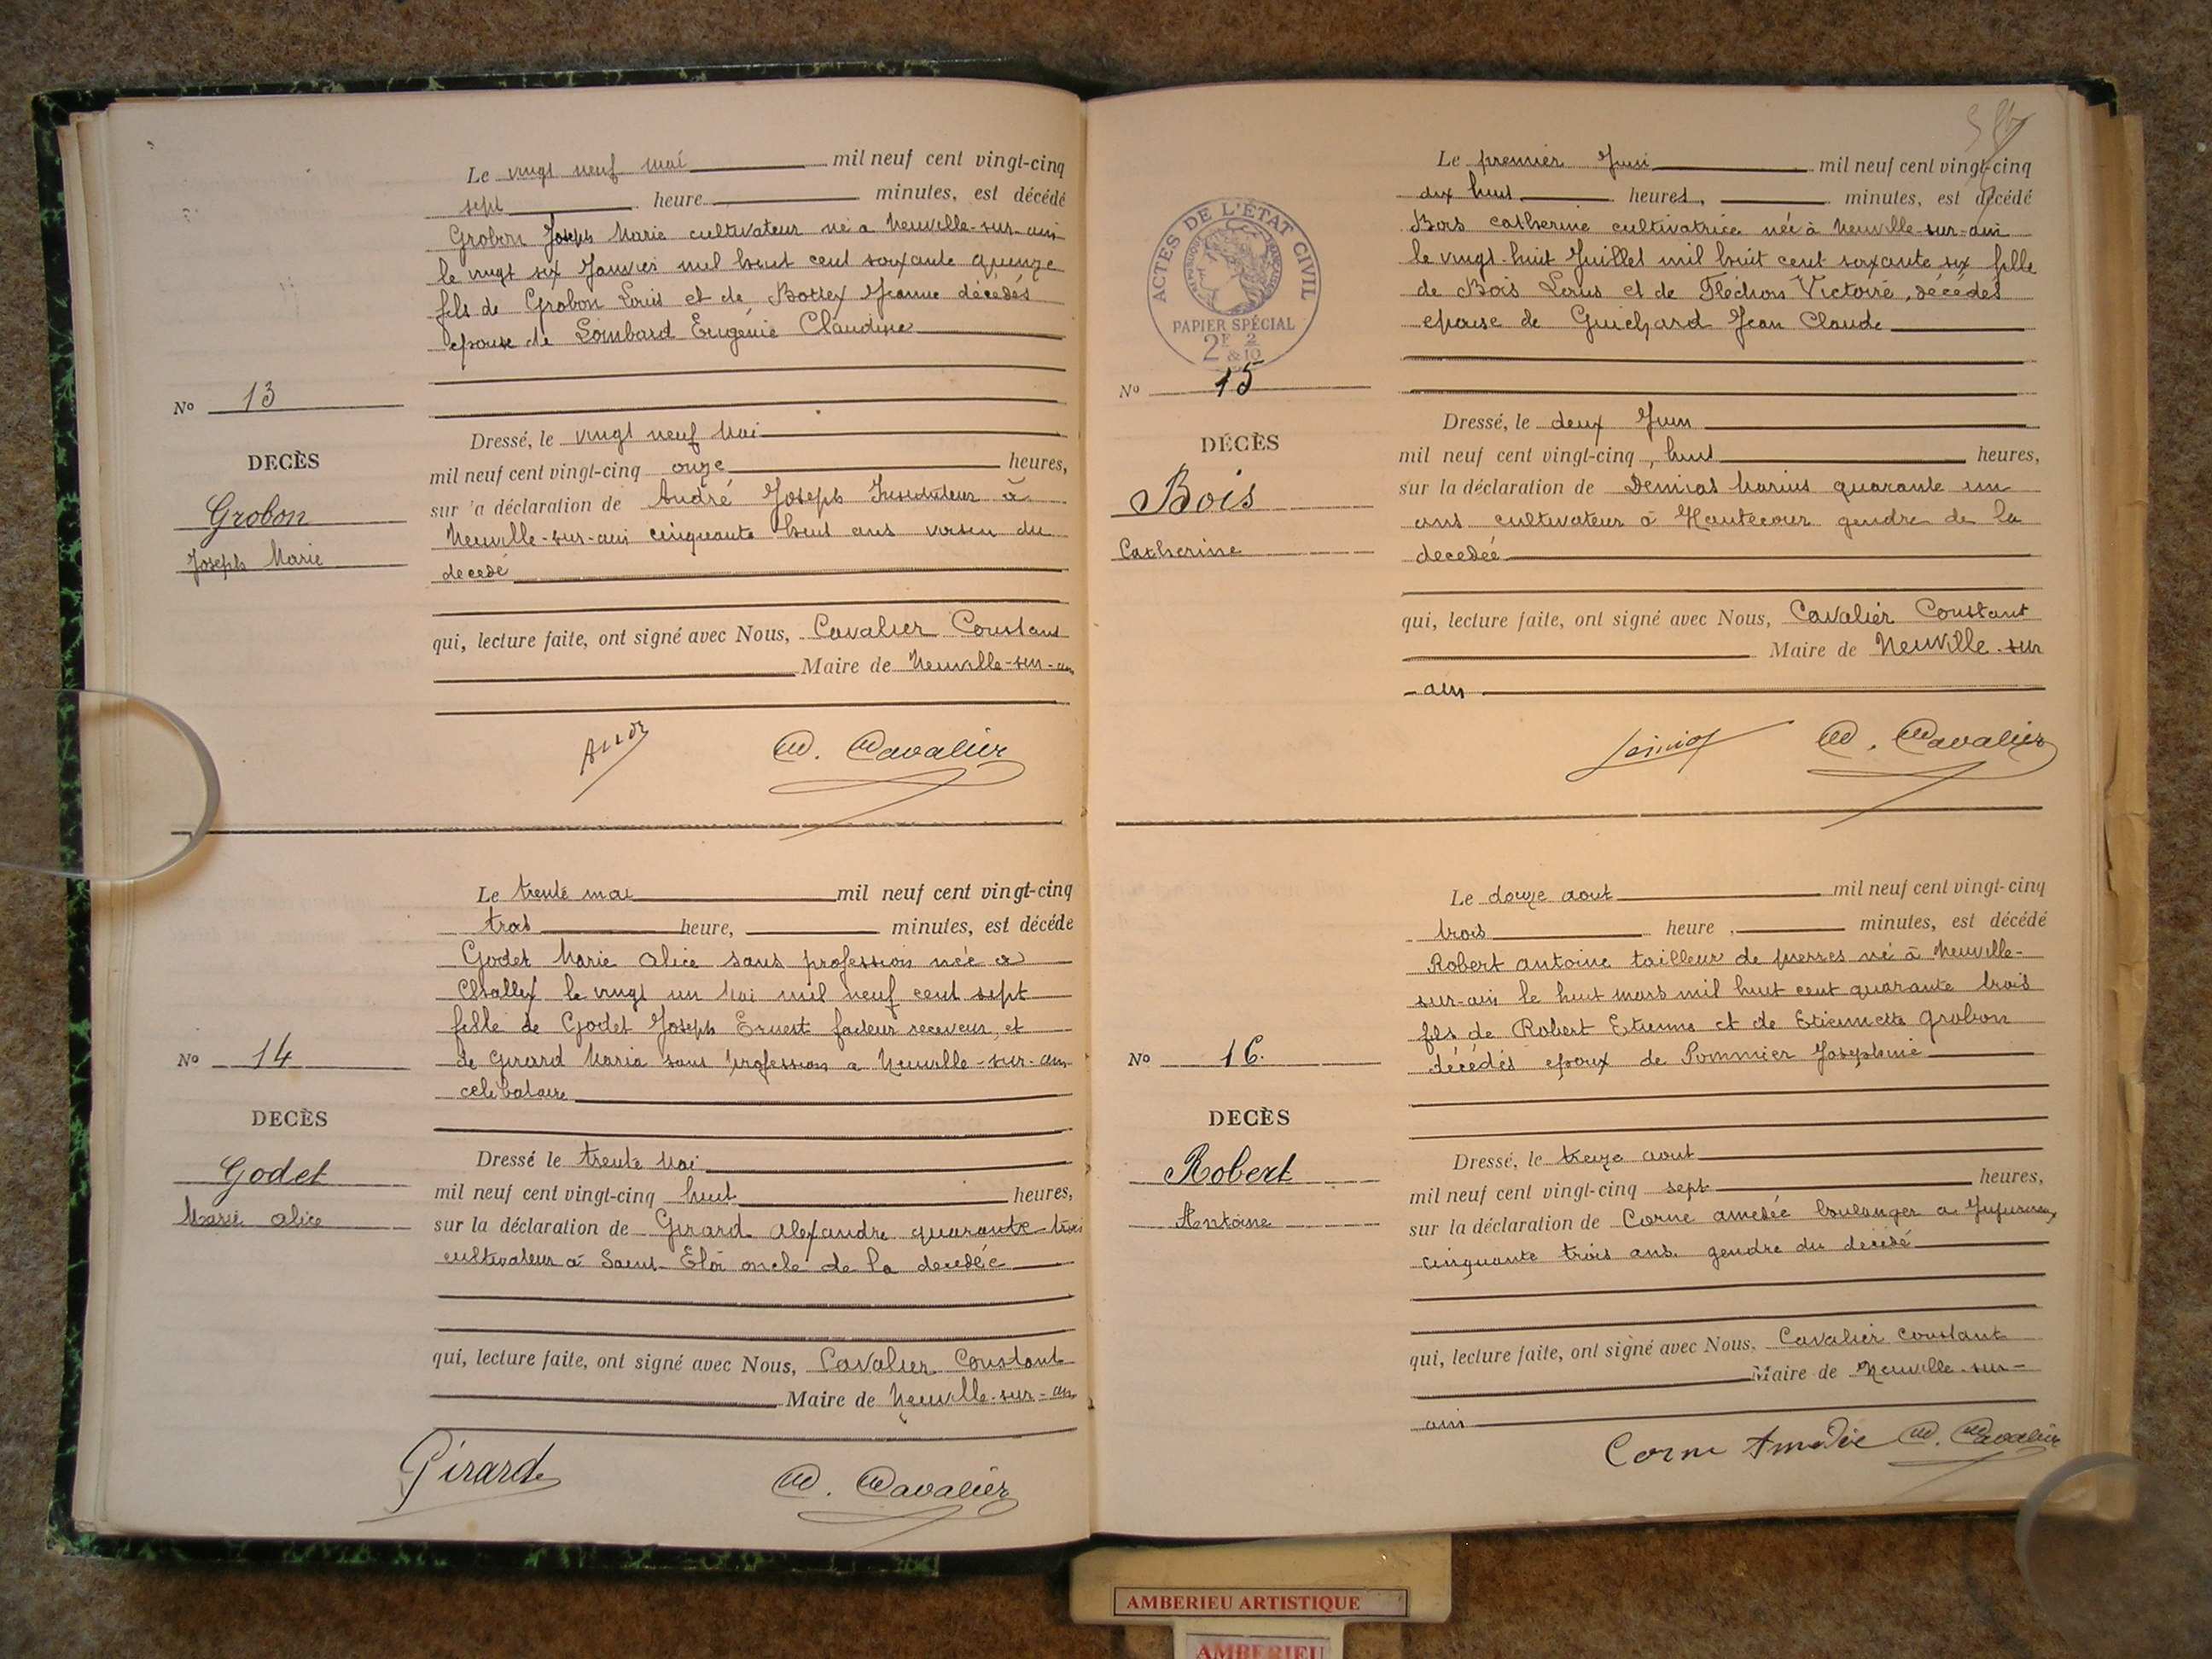 Le vingt neuf mai mil neuf cent vingt-cinq
sept heure minutes, est décédé
Grobon Joseph Marie cultivateur né a Neuville-sur-ain
le vingt six Janvier mil huit cent soixante quinze
fils de Grobon Louis et de Bottex Jeanne décédés
époux de Lombard Eugénie Claudine
No 13
DECÈS
Grobon
Joseph Marie
Dressé, le vingt neuf Mai
mil neuf cent vingt-cinq onze heures,
sur 'a déclaration de André Joseph Instituteur à
Neuville-sur-ain cinquante huit ans voisin du
decedé
qui, lecture faite, ont signé avec Nous, Cavalier Constant
Maire de Neuville-sur-ain
C. Cavalier
Le trente mai mil neuf cent vingt-cinq
trois heure, minutes, est décéde
Godet Marie Alice sans profession née à
Challex le vingt un Mai mil neuf cent sept
fille de Godet Joseph Ernest facteur receveur, et
de Girard Maria sans profession a Neuville-sur-ain
celibataire
No 14
DECÈS
Godet
Marie alice
Dressé le trente Mai
mil neuf cent vingt-cinq huit heures,
sur la déclaration de Girard Alexandre quarante trois
cultivateur à Saint-Eloi oncle de la decedée
qui, lecture faite, ont signé avec Nous, Cavalier Constant
Maire de Neuville-sur-ain
Girard
C. Cavalier
Le premier Juin mil neuf cent vingt-cinq
dix huit heures, minutes, est décédé
Bois Catherine cultivatrice née à Neuville-sur-ain
le vingt-huit Juillet mil huit cent soixante six fille
de Bois Louis et de Fléchon Victoire, décédés
epouse de Guichard Jean Claude
ACTES DE L'ÉTAT CIVIL
PAPIER SPÉCIAL
2F 2
&10
No 15
DÉCÈS
Bois
Catherine
Dressé, le deux Juin
mil neuf cent vingt-cinq, huit heures,
sur la déclaration de Demias Marius quarante un
ans cultivateur à Hautecour gendre de la
decedée
qui, lecture faite, ont signé avec Nous, Cavalier Constant
Maire de Neuville-sur
-ain
C. Cavalier
Le douze aout mil neuf cent vingt-cinq
trois heure, minutes, est décédé
Robert antoine tailleur de pierres né à Neuville-
sur-ain le huit mars mil huit cent quarante trois
fils de Robert Etienne et de Etiennette Grobon
décédés epoux de Pommier Josephine
No 16.
DECÈS
Robert
Antoine
Dressé, le treize aout
mil neuf cent vingt-cinq sept heures,
sur la déclaration de Corne amedée boulanger a Jujurieux
cinquante trois ans. gendre du decédé
qui, lecture faite, ont signé avec Nous, Cavalier constant
Maire de Neuville-sur-
ain
Corne Amedée C. Cavalier
AMBERIEU ARTISTIQUE
AMBERIEU